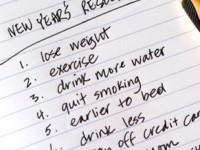 NEW YEAR'S
1. lose weight
2. exercise
3. drink more water
4. quit smoking
5. earlier to bed
6. drink less
off credit